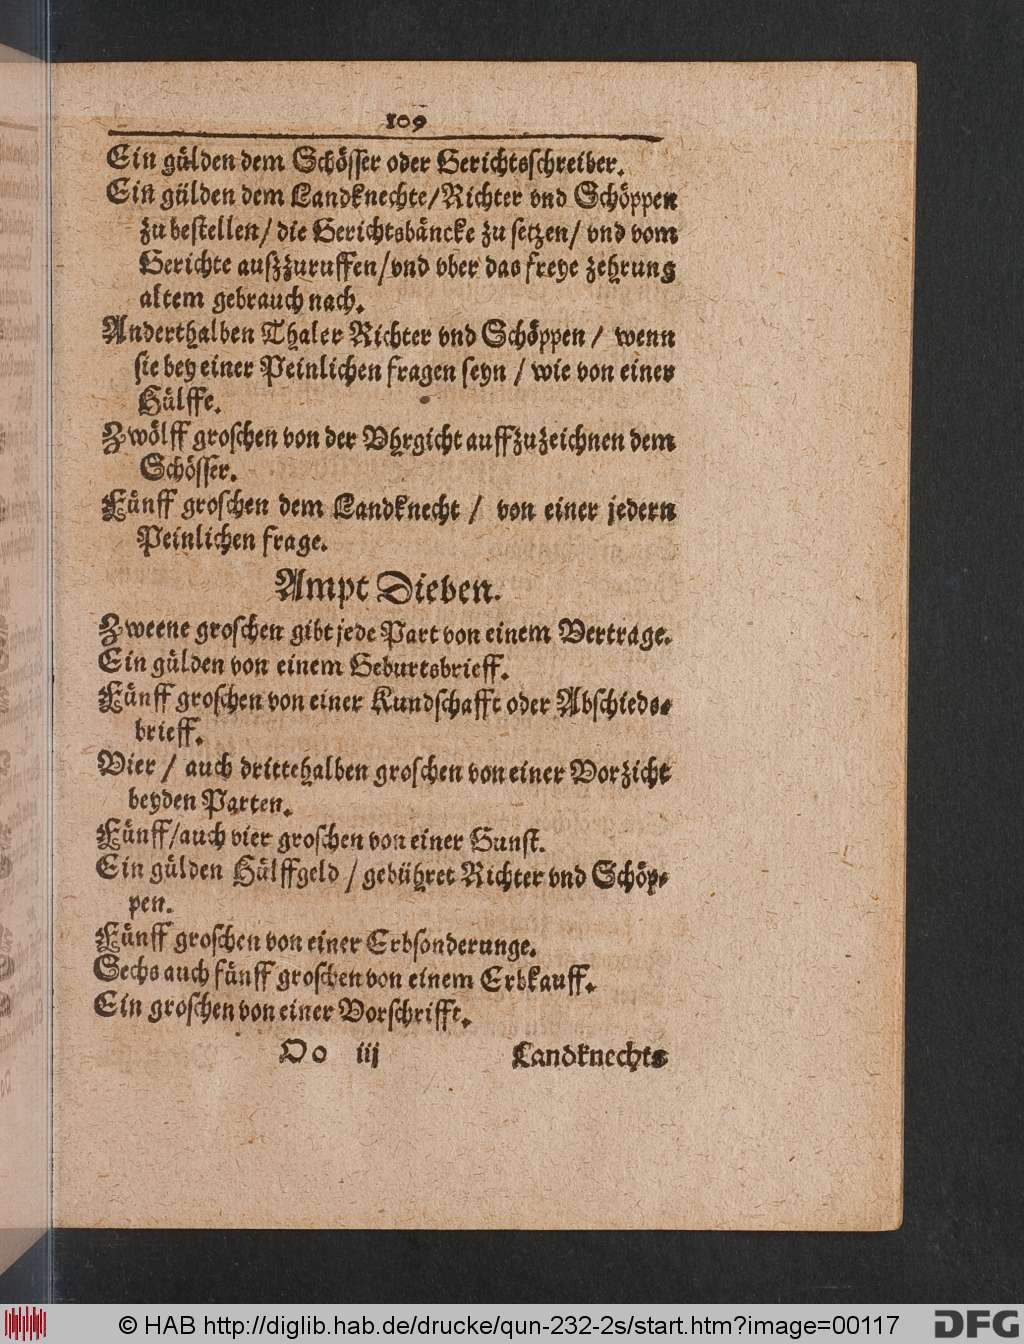 109
Ein gülden dem Schösser oder Gerichtsschreiber.
Ein gülden dem Landknechte/Richter vnd Schöppen
zu bestellen/ die Gerichtsbäncke zu setzen/ vnd vom
Gerichte außzuruffen/vnd vber das freye zehrung
altem gebrauch nach.
Anderthalben Thaler Richter vnd Schöppen / wenn
sie bey einer Peinlichen fragen seyn / wie von einer
Hülffe.
Zwölff groschen von der Vhrgicht auffzuzeichnen dem
Schösser.
Fünff groschen dem Landknecht / von einer jedern
Peinlichen frage.
Ampt Dieben.
Zweene groschen gibt jede Part von einem Vertrage.
Ein gülden von einem Geburtsbrieff.
Fünff groschen von einer Kundschafft oder Abschieds-
brieff.
Vier / auch drittehalben groschen von einer Vorzicht
beyden Parten.
Fünff/auch vier groschen von einer Gunst.
Ein gülden Hülffgeld / gebühret Richter vnd Schöp-
pen.
Fünff groschen von einer Erbsonderunge.
Sechs auch fünff groschen von einem Erbkauff.
Ein groschen von einer Vorschrifft.
Oo iij Landknechts
© HAB http://diglib.hab.de/drucke/qun-232-2s/start.htm?image=00117
DFG